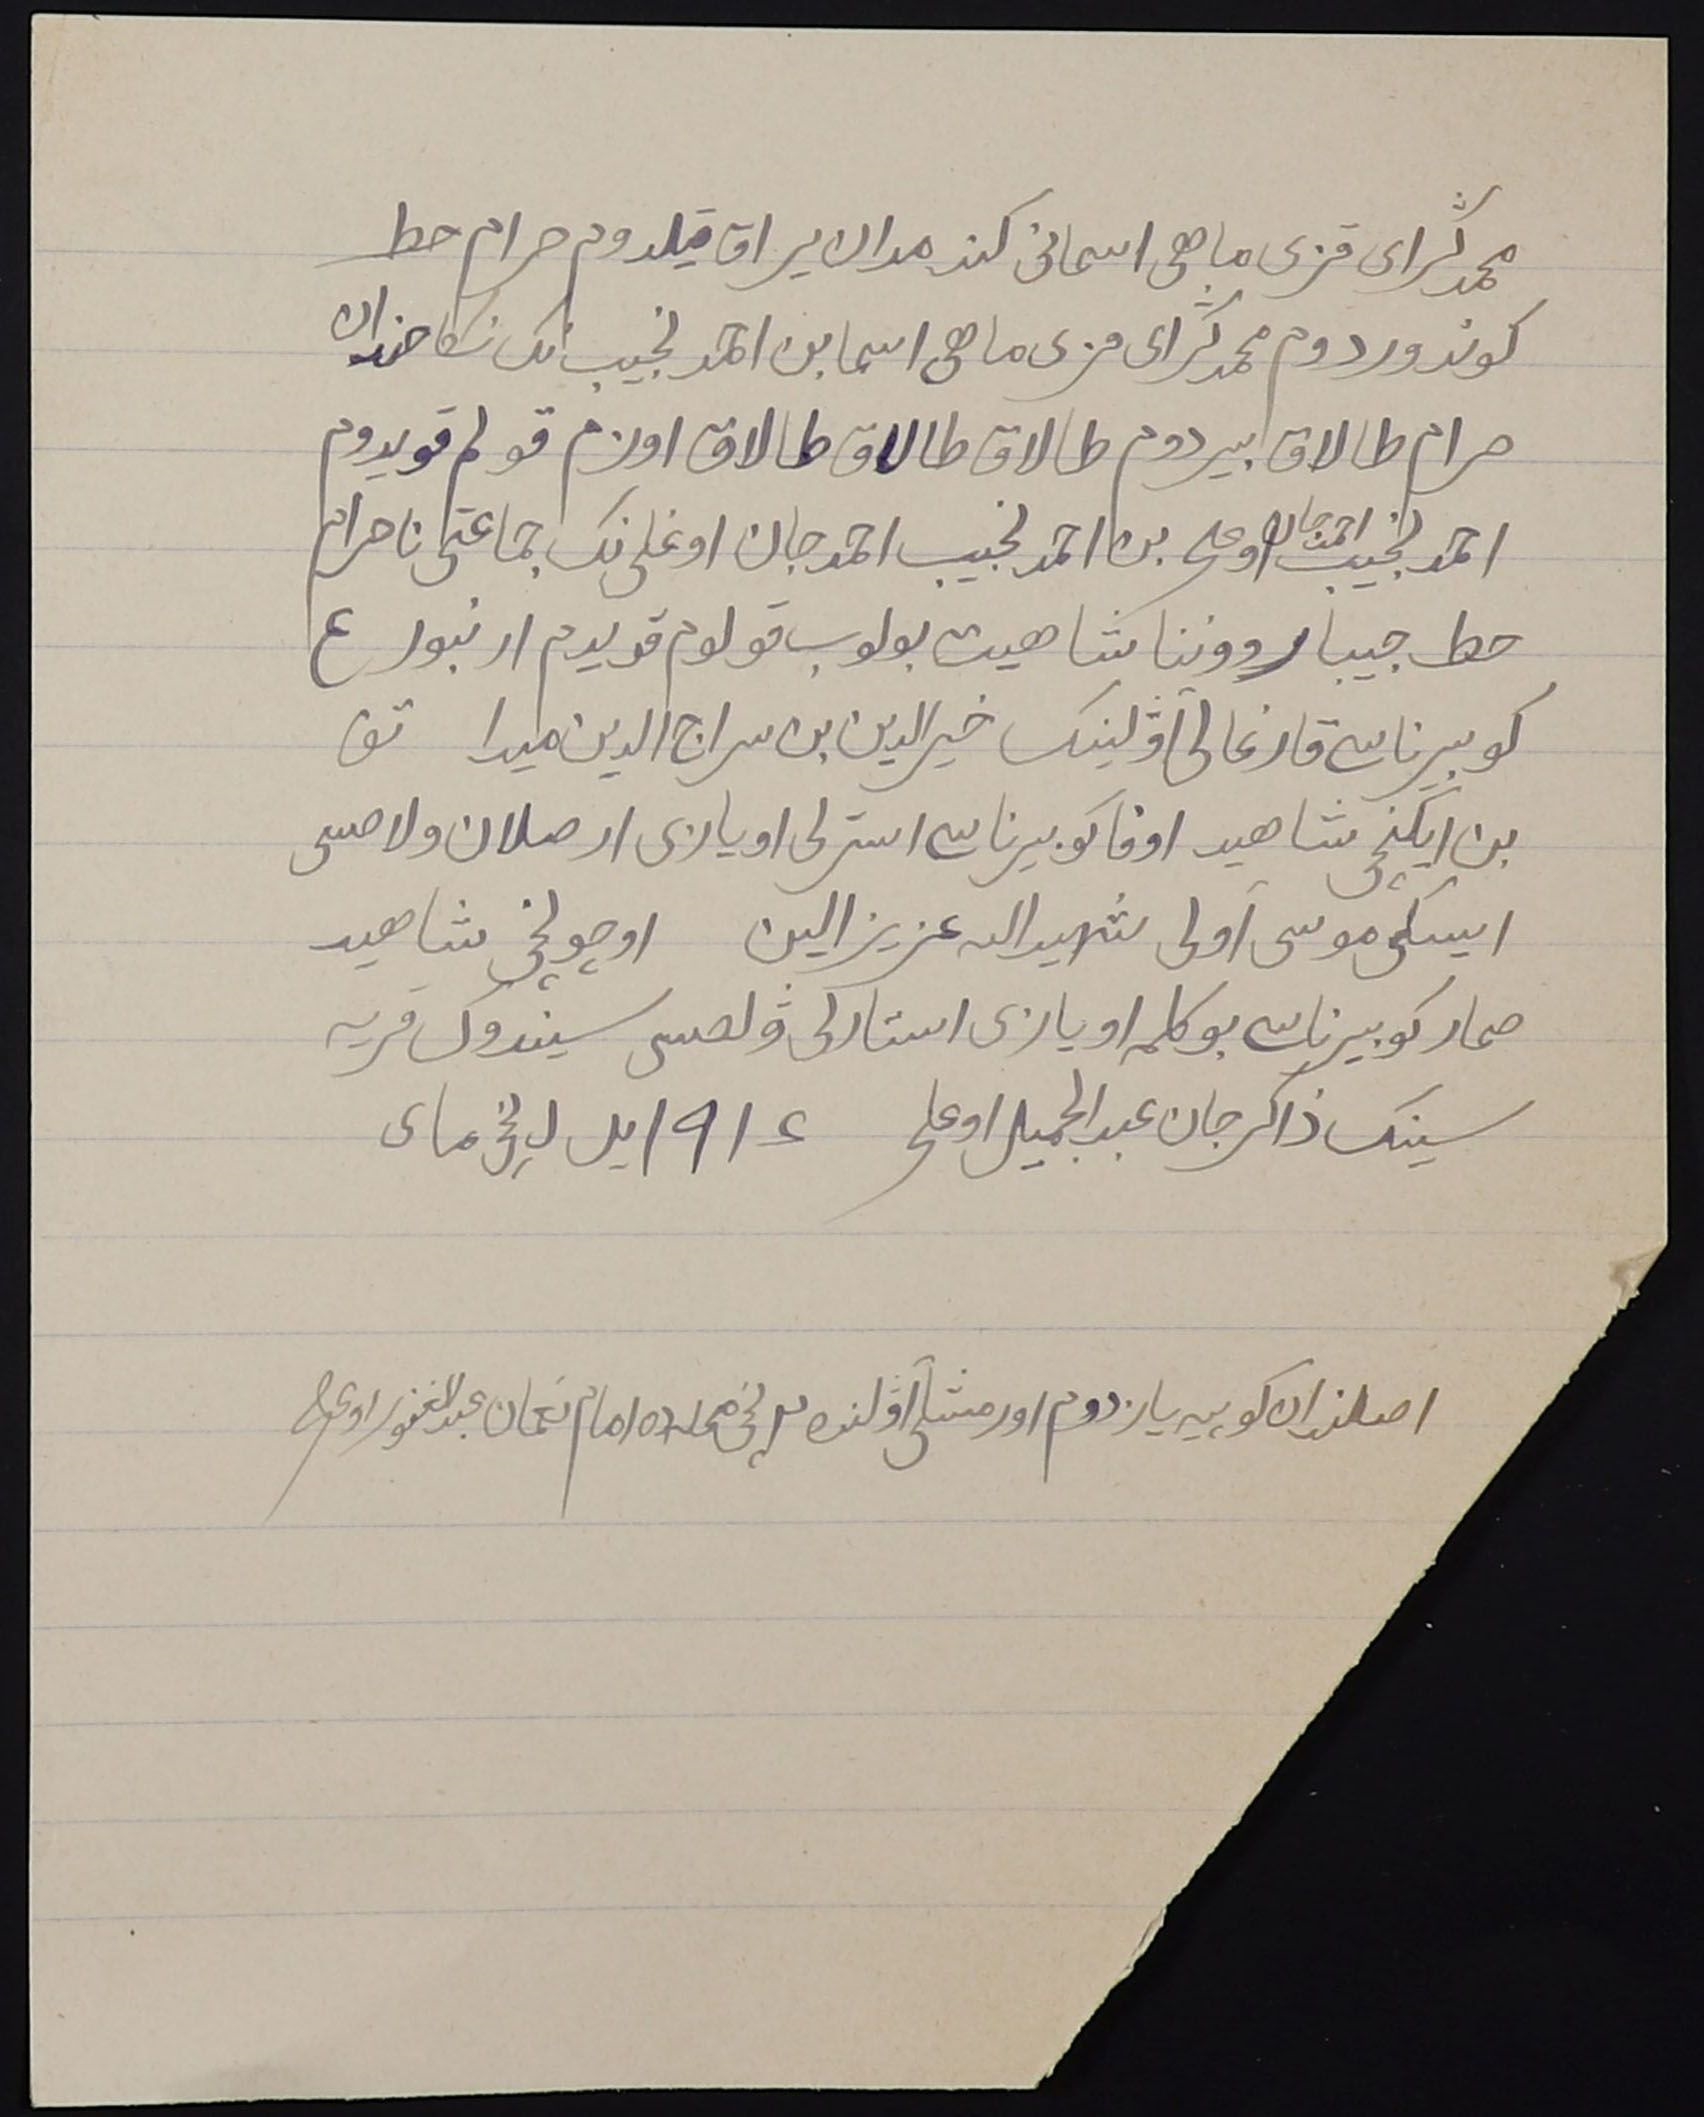 محمد گرای قزی ماهی اسمانی کندمدان یراق قیلدوم حرام حط
کوندوردوم محمد گرای قزی ماهی اسما بن احمد نجیب نک نکاحندان
حرام طالاق بیردوم طالاق طالاق طالاق اوزم قولم قویدوم
احمد نجیب احمدجان اوغلی بن احمد نجیب احمدجان اوغلی نک جماعتی نا حرام
حط جیباردوننا شاهیت بولوب قولوم قویدم ارنبورع
کوبیرناسی قارغالی آۋلینک خیرالدین بن سراج الدین
بن ایکنچی شاهید اوفا کوبیرناسی استرلی اویازی ارصلان ولاصسی
ایسکی موسی آولی شهیدالله عزیزالین اوچونچی شاهید
صمار کوبیرناسی بوکلمه اویازی استارلی ۋلصسی سیندوک قریه
سینک ذاکرجان عبدالجمیل اوغلی ١٩١٤ یل مای
اصلندان کوپیه یازدوم اورمشلی آۋلنده ٢ نچی محلده امام نعمان عبدالغفور اوغلی